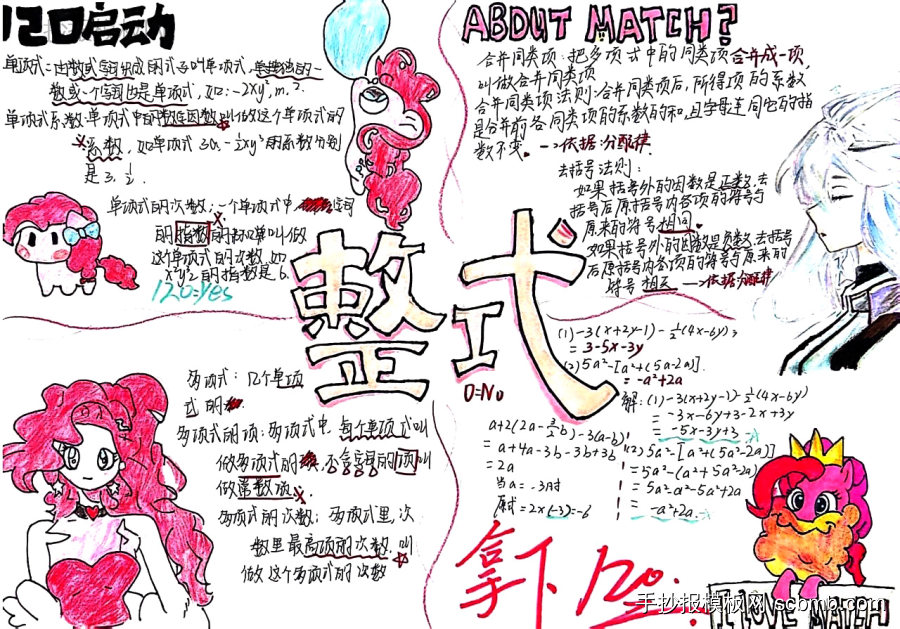 120启动
单项式:由数或字母组成的式子叫单项式,单独的一
数或一个字母也是单项式,如:-2xy²,m,2.
单项式系数:单项式中的数字因数叫做这个单项式的
系数,如单项式3a,-½xy²的系数分别
是3,½.
单项式的次数:一个单项式中,
的指数的和叫做
这个单项式的次数,如
x⁴y²的指数是6.
120=yes
ABOUT MATCH?
合并同类项:把多项式中的同类项合并成一项,
叫做合并同类项
合并同类项法则:合并同类项后,所得项的系数
是合并前各同类项的系数的和,且字母连同它的指
数不变。→依据:分配律
去括号法则:
如果括号外的因数是正数,去
括号后原括号内各项的符号与
原来的符号相同。
如果括号外的因数是负数,去括号
后原括号内各项的符号与原来的
符号相反 →依据分配律
整式
0=No
多项式:几个单项
式的
多项式的项:多项式中,每个单项式叫
做多项式的项,不含字母的项叫
做常数项.
多项式的次数:多项式里,次
数里最高项的次数,叫
做这个多项式的次数
(1)-3(x+2y-1)-½(4x-6y);
=3-5x-3y
(2)5a²-[a²+(5a-2a)].
=-a²+2a
解:(1)-3(x+2y-1)-½(4x-6y)
=-3x-6y+3-2x+3y
=-5x-3y+3
(2)5a²-[a²+(5a²-2a)]
=5a²-(a²+5a²-2a)
=5a²-a²-5a²+2a
=-a²+2a
a+2(2a-3/2b)-3(a-b)
=a+4a-3b-3b+3b
=2a
当a=-3时
原式=2×(-3)=-6
拿下120.
I LOVE MATCH
手抄报模板网 scbmb.com